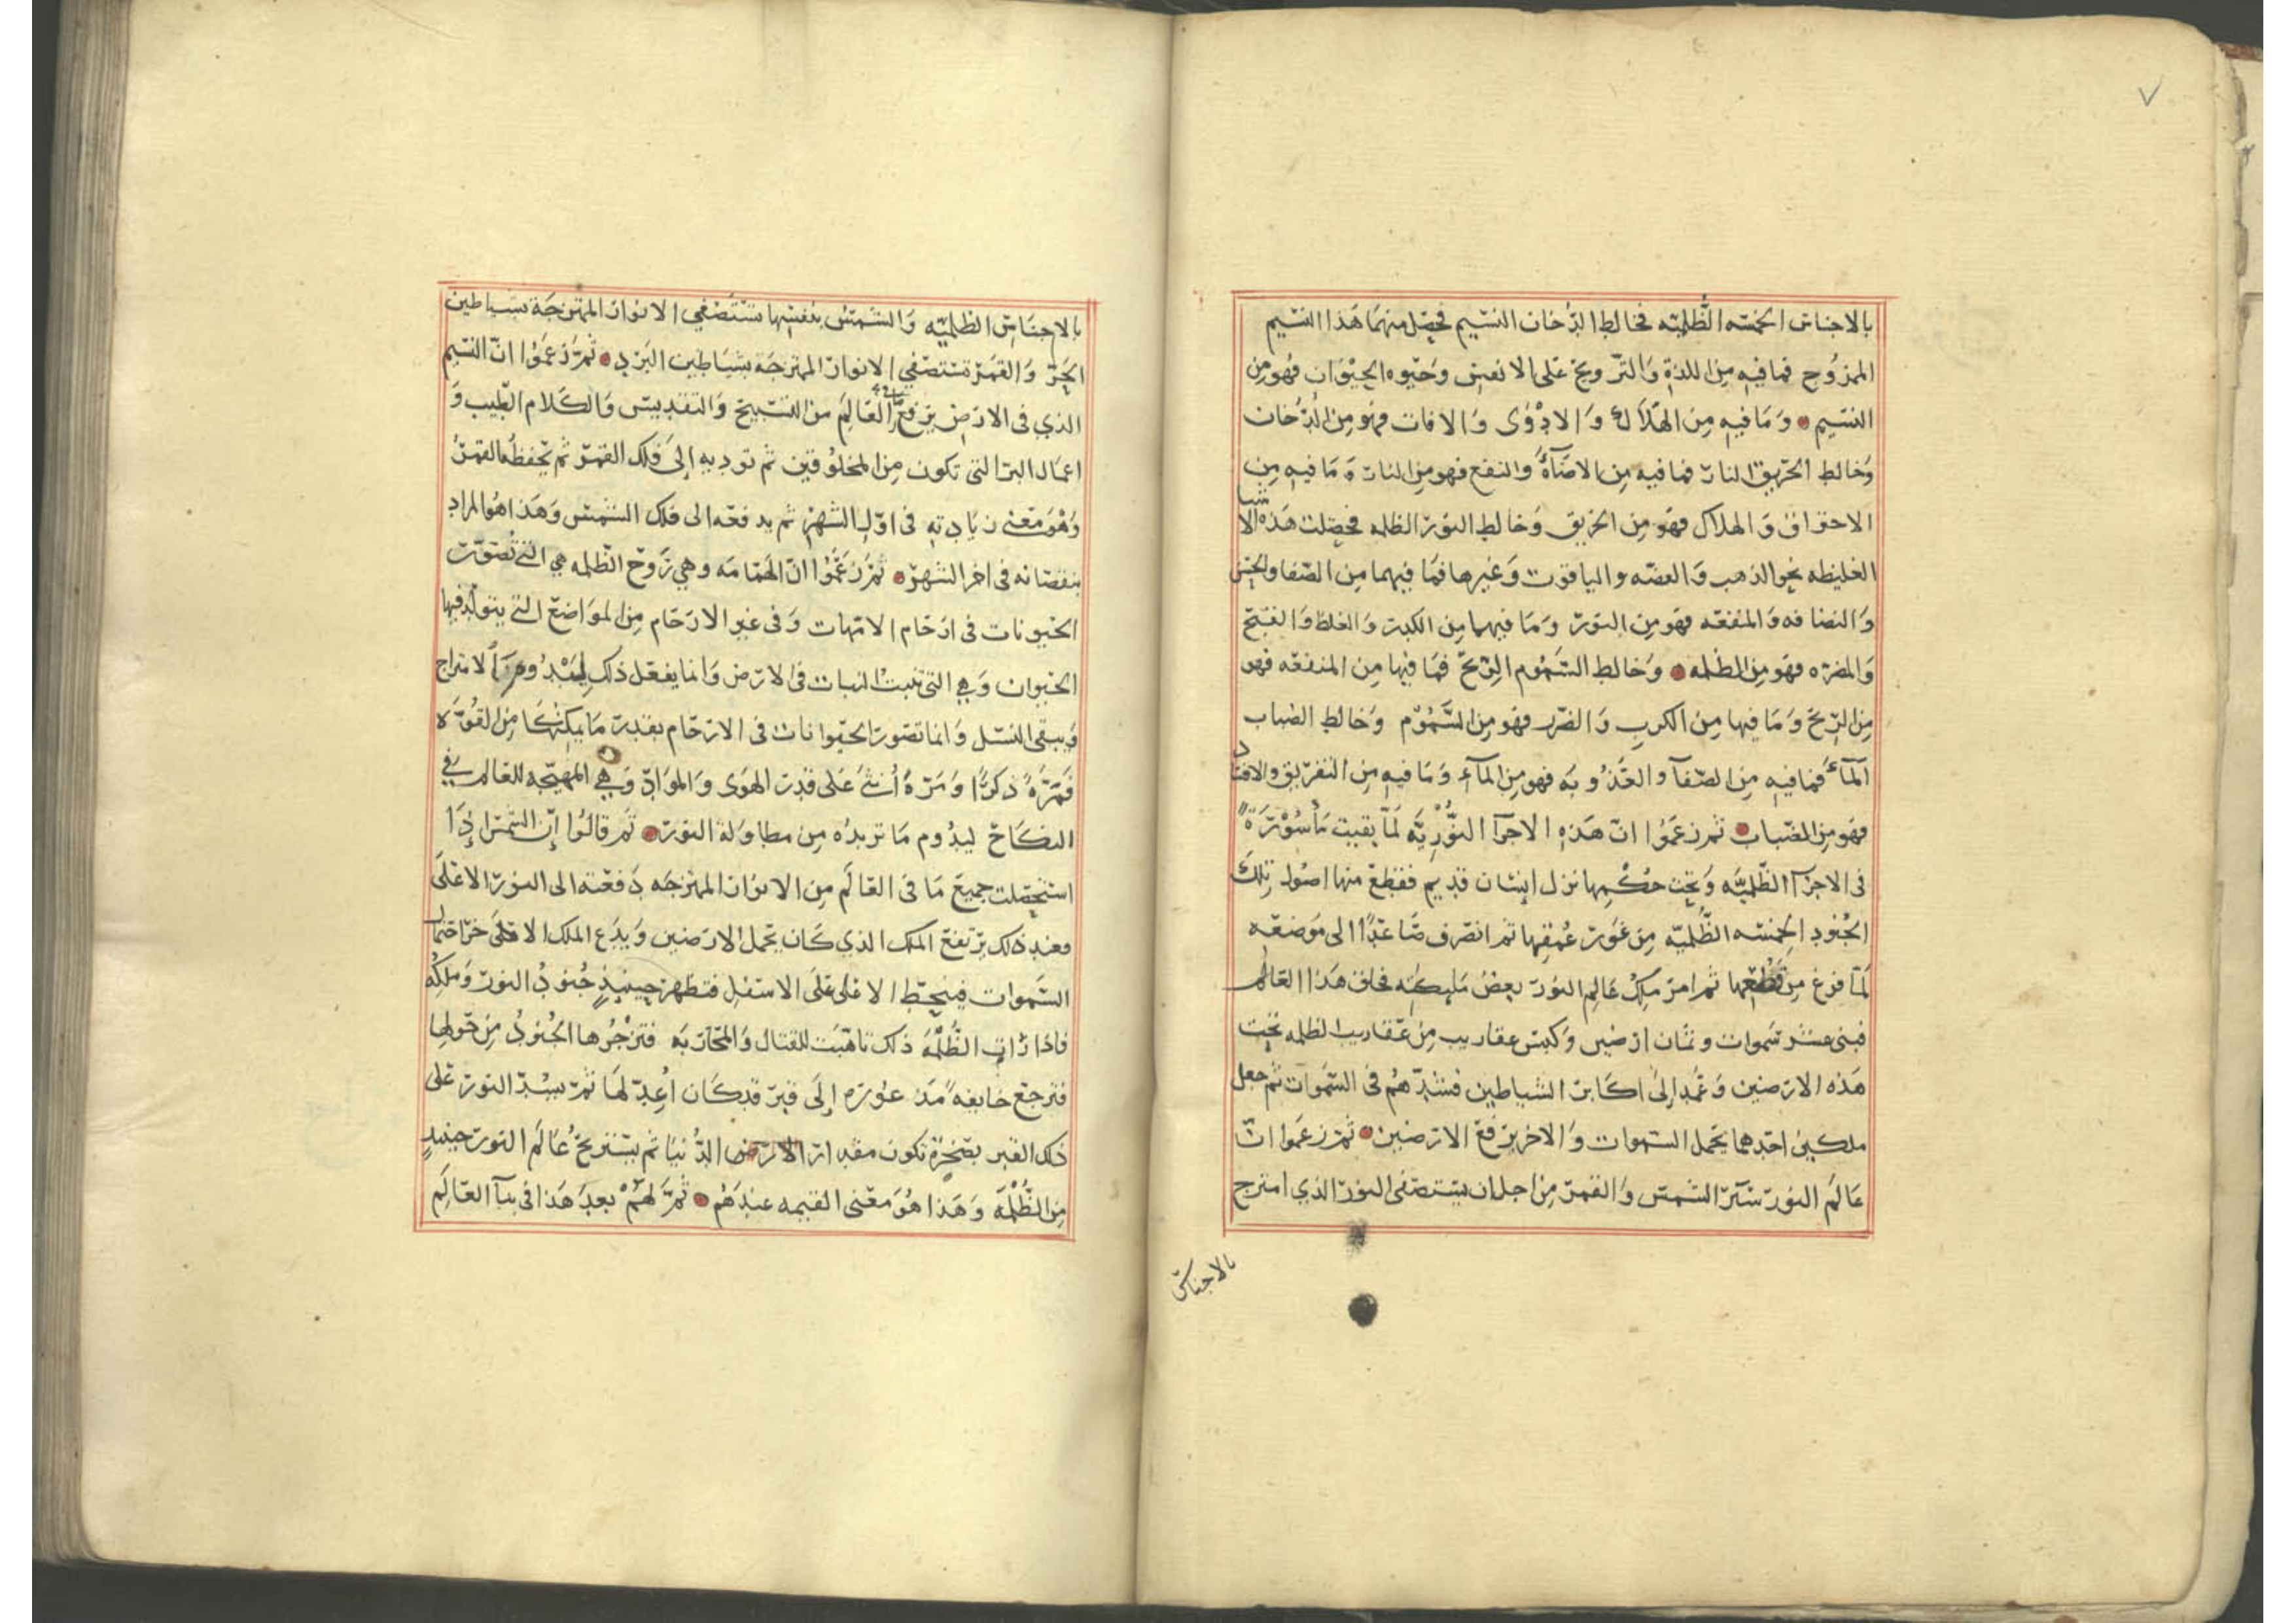 ٧
بالاجناس الخمسه الظُّلميّه فخالط الدُّخان النسيم فحصل منهما هَذا النسيم
الممزُوج فما فيهِ مِن اللذة وَالتروّيح عَلى الانفس وَحَيوه الحيْوَان فهُو مِن
النسيم وَمَا فيهِ مِن الهَلاَك وَالادْوٰى وَالافات فهو مِن الدُّخان
وَخالط الحَريق النار فما فيه مِن الاضآةُ والنفع فهو مِن النار وَمَا فيه مِن
الاحتراق وَالهلاك فهَو مِن الحَريق وَخالط النور الظلمه فحصَلت هَذه الاشيا
الغليظه نحو الذهب وَالفضّه والياقوت وَغيرها فمَا فيهما مِن الصّفا والحسن
وَالنضافه وَالمنفعَه فهو مِن النور وَمَا فيهما مِن الكبر وَالغلظ وَالقبح
وَالمضره فهَو مِن الظلمه وَخالط السَّمُوم الرّيح فمَا فيها من المنفعَه فهو
مِن الرّيح وَمَا فيها مِن الكربِ وَالضّرر فهو مِن السَّمُوْم وَخالط الضباب
المآءَ فما فيهِ مِن الصّفآ والعَذُوبَه فهو مِن المآءِ وَمَا فيه مِن التغريق والافساد
فهو مِن الضّباب ثم زعَمَوُا انّ هَذهِ الاجزآ النُّوْرِيَّه لَمّا بقيت مَأسُوْرَة
فى الاجزآ الظّلميَّه وَتحت حكمِها نزل اِنسَان قديم فقطع منها اصُول تِلكَ
الجُنُودِ الخمسَه الظّلميّه مِن غَور عُمقِها ثم انصَرف صَاعدًا الى مَوضعَه
لمّا فرغ مِن قطعها ثم امر مَلِكُ عَالمِ النوُر بعض مَليكتِه فخلق هَذا العَالم
فبنى عشر سَموات وثمان ارضين وَكبس عقاريب مِن عقاريب الظلمه تحت
هَذه الارضين وَعَمد اِلى اكابر الشياطين فشدّهُم فى السَّمَوات ثم جعل
ملكين احَدهما يحمل السّموات وَالاخر يرفع الارضين ثم زعَموا انّ
عَالمَ النور سَيّر الشمس وَالقمر مِن اجل ان يستصفى النور الذي امتزج
بالاجناس
بالاجناسِ الظلميّه وَالشمسُ بنفسِها تستصفي الانوار الممتزجَة بشياطين
الحَرّ وَالقَمَر تستصفي الانوار الممتزجَه بشيَاطين البَرد ثم زعَمَوْا انّ النسيم
الذي فى الارض يرفع العَالمَ من التسبيح وَالتقديس وَالكلام الطّيب وَ
اعمال البر التى تكون مِن المخلوُقين ثم تودّيهِ اِلى فَلك القمر ثم يحفظه القمرُ
وَهْوَ مَعْنى زيَادتهِ فى اوّل الشهر ثم يدفعَه الى فلك الشمس وَهَذا هُو المراد
بنقصَانه فى اخر الشهر ثم زعَمُوا انّ الهَمَامَه وهي رَوح الظلمه هي التى تصَوّر
الحيونات فى ارحَام الامّهات وَفى غير الارحَام مِن المواضع التى يتولّد فيها
الحَيوان وَهي التى تنبت النبات فى الارض وَانما يفعَل ذلك الامتزاج
وَيبقى النسَل وَانما تصَور الحَيوانات فى الارحَام بقدر مَا يمكنها مِن القوُّة
فمَرّة ذكرًا وَمَرّة أنثى عَلى قدر الهوَى وَالموَادِّ وَهي المهيّجه للعَالم في
النكاح ليدُوم مَا تريدُه مِن مطاوَلة النور ثم قالوُا اِنّ الشّمس اِذا
استحصَلت جميعَ مَا فى العَالَم مِن الانوَار الممتزجَه دَفعَته الى النور الاعْلَى
فعند ذلك يرتفع الملك الذي كَان يحمل الارضين وَيدَع الملك الاعلى
السَّموات فينحط الاعلى عَلَى الاسفل فتظهر حينيذٍ جُنودُ النور وَملكُه
فاذا رَات الظُّلمَه ذلك تاهّبَت للقتال وَالمحَاربَه فتزجُرها الجُنودُ مِن حَولها
فترجع خايفهً الى قبرٍ قد كَان اُعدّ لهَا ثم يسُدّ النور عَلى
ذلك القبر بصَخرَة تكون مقدار الارض الدُّنيَا ثم يستريحُ عَالمَ النور حينيذٍ
مِن الظُّلمَه وَهَذا هُوَ مَعْنى القيمه عندَهُم ثم لهُم بعد هَذا فى بنآ العَالَمِ